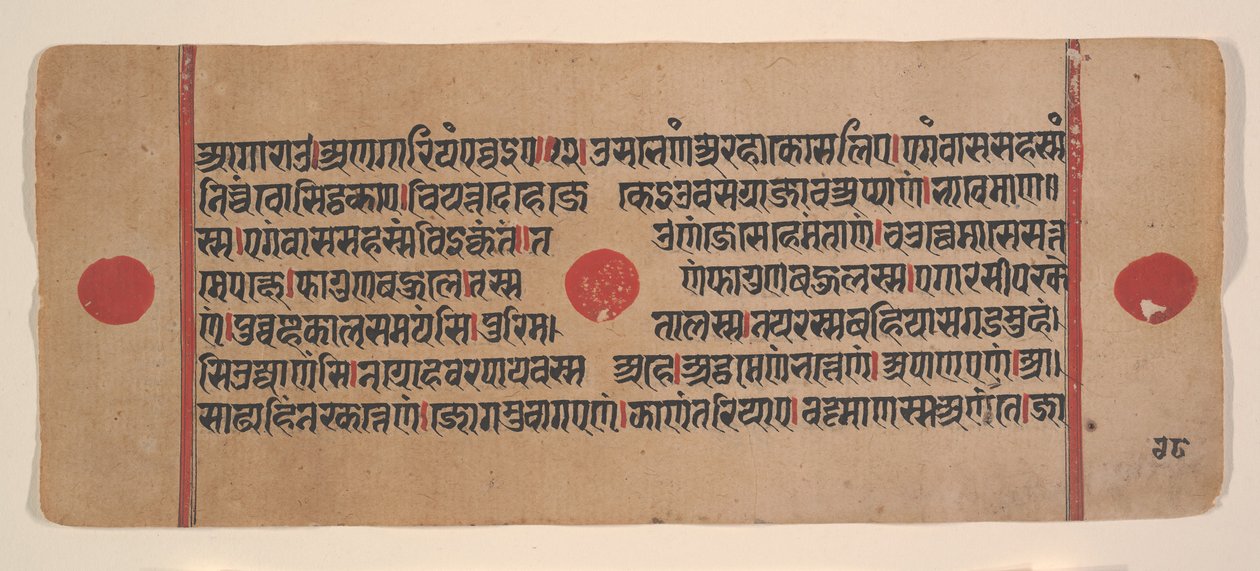 अगाराउ।अणगारियं पव्वइए॥ उसभेणं अरहा कोसलिए।एगं वाससहस्सं
निच्चं वोसिट्ठकाए।चियत्तदेहे जे केइ उवसग्गा जाव अप्पाणं।भावेमाण॥
स्स।एगं वाससहस्सं विइक्कंतं॥त उणं जे से हेमंताणं।चउत्थे मासे सत्त
मे पक्खे।फागुणबहुले।तस्स णं फागुणबहुलस्स।एगारसीपरके
णं।पुव्वण्हकालसमयंसि।पुरिम। तालस्स।नयरस्स बहिया सगडमुहं।
सि उज्जाणंसि।नग्गोहवरपायवस्स अहे।अट्ठमेणं भत्तेणं।अपाणएणं।आ।
साढाहिं नरकत्तेणं।जोगमुवागएणं।झाणंतरियाए।वट्टमाणस्स अणंते।जा